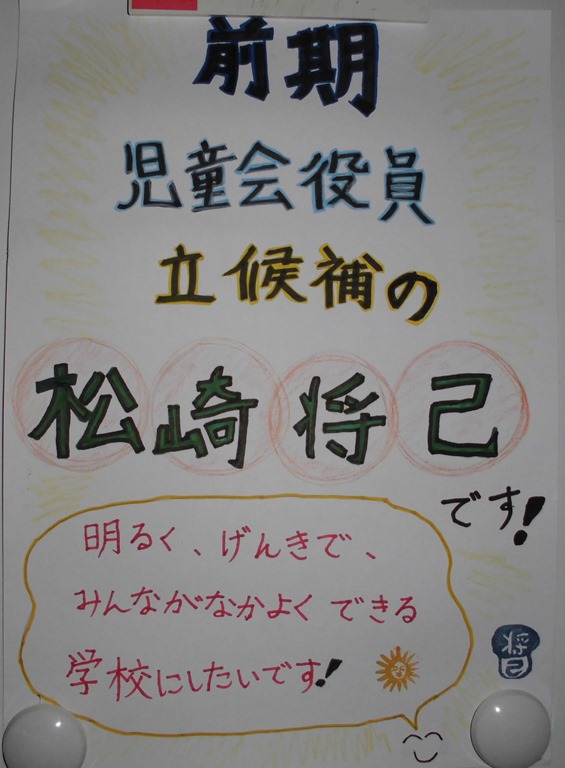 前期
児童会役員
立候補の
松崎将己
です!
明るく、げんきで、
みんながなかよくできる
学校にしたいです!
将己